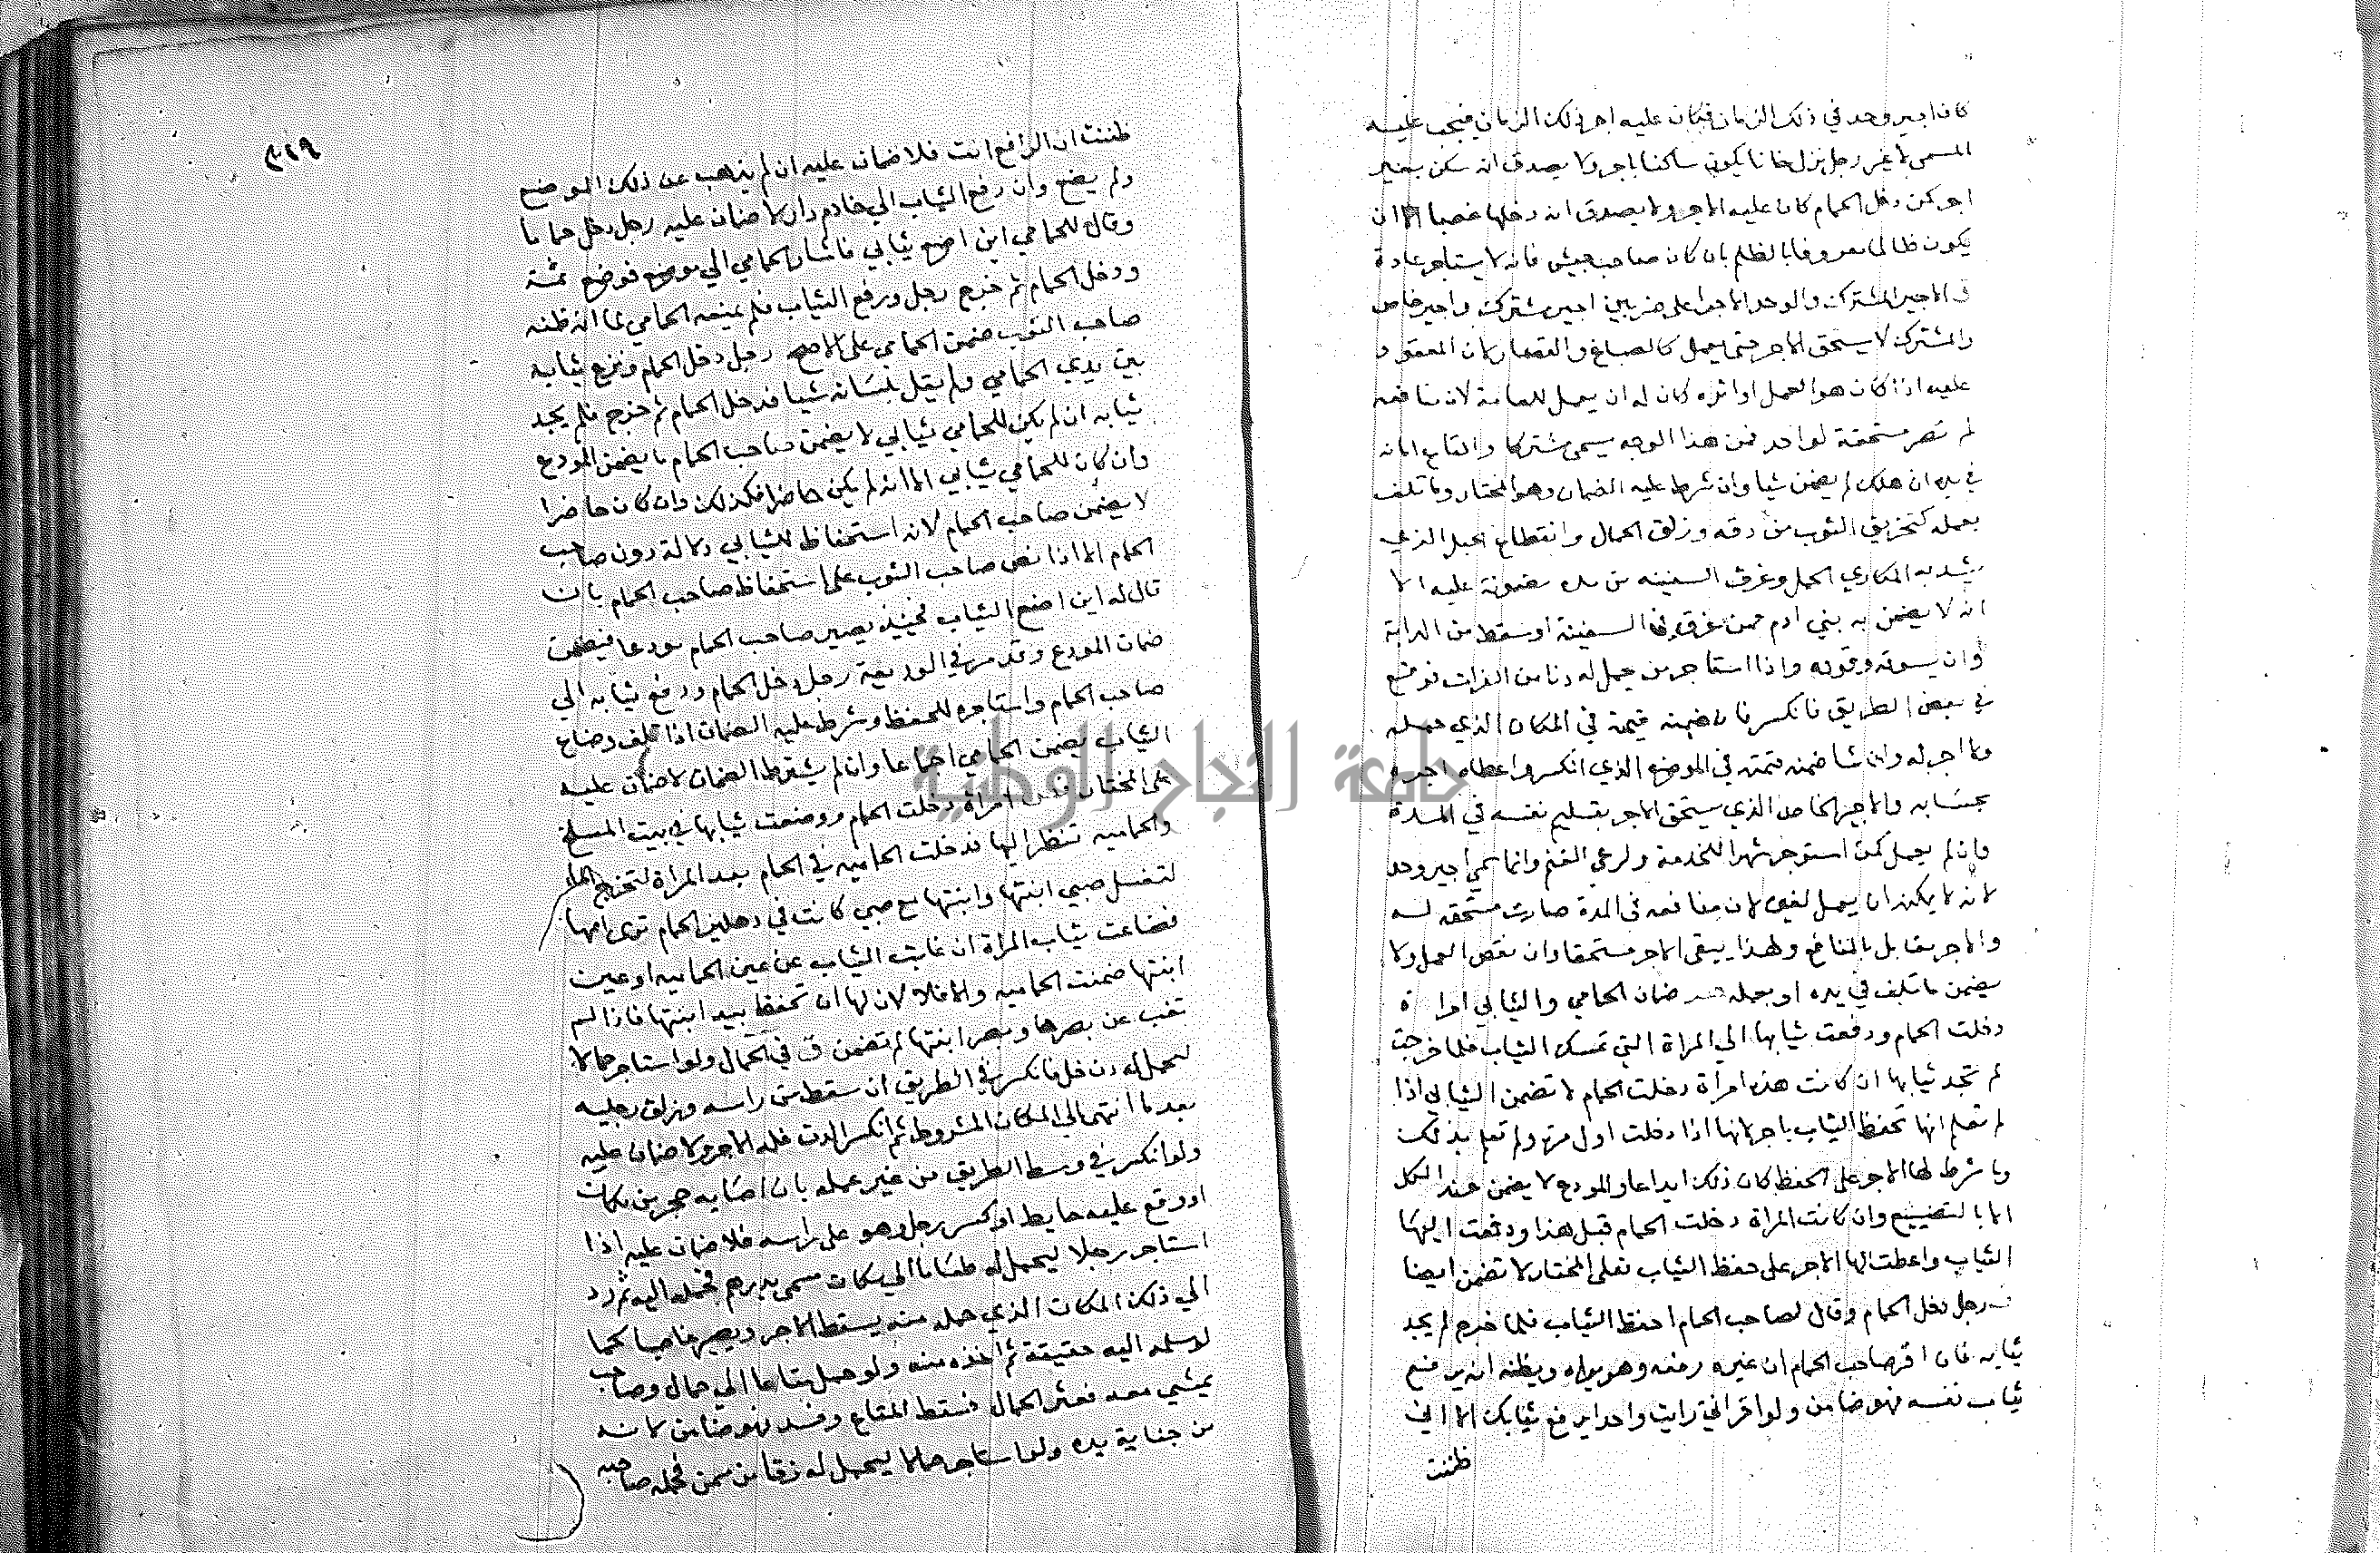 كان اجير وحد في ذلك الزمان فكان عليه اجر ذلك الزمان فيجب عليه
المسمى لا غير رجل نزل خانا يكون ساكنا باجر ولا يصدق انه سكن بغير
اجر كمن دخل الحمام كان عليه الاجر ولا يصدق انه دخلها غصبا الا ان
يكون ظالما معروفا بالظلم بان كان صاحب جيش فانه لا يستاجر عادة
في الاجير المشترك والوحد الاجرا على ضربين اجير مشترك واجير خاص
والمشترك لا يستحق الاجر حتى يعمل كالصباغ والقصار لان المعقود
عليه اذا كان هو العمل او اثره كان له ان يعمل للعامة لان منافعه
لم تصر مستحقة لواحد فمن هذا الوجه يسمى مشتركا والمتاع امانة
في يده ان هلك لم يضمن شيا وان شرط عليه الضمان وهو المختار وما تلف
بعمله كتخريق الثوب من دقه وزلق الحمال وانقطاع الحبل الذي
يشد به المكاري الحمل وغرق السفينة من مده مضمونة عليه الا
انه لا يضمن به بني ادم ممن غرق في السفينة او سقط من الدابة
وان بسوقه وقوده واذا استاجر من يحمل له دنا من الفرات فوقع
في بعض الطريق فانكسر فان ضمنه قيمته في المكان الذي حمله
ولا اجر له وان شا ضمنه قيمته في الموضع الذي انكسر واعطاه اجره
بحسابه والاجير الخاص الذي يستحق الاجر بتسليم نفسه في المدة
وان لم يعمل كمن استوجر شهرا للخدمة ولرعي الغنم وانما سمي اجير وحد
لانه لا يمكنه ان يعمل لغيره لان منافعه في المدة صارت مستحقه له
والاجر مقابل بالمنافع ولهذا يبقى الاجر مستحقا وان نقص العمل ولا
يضمن ما تلف في يده او بعمله ضمان الحمامي والثيابي امراة
دخلت الحمام ودفعت ثيابها الي المراة التي تمسك الثياب فلما خرجت
لم تجد ثيابها ان كانت هذه امرأة دخلت الحمام لا تضمن الثيابي اذا
لم تعلم انها تحفظ الثياب باجر لانها اذا دخلت اول مرة ولم تعلم بذلك
وما شرط لها الاجر على الحفظ كان ذلك ايداعا والمودع لا يضمن عند الكل
الا بالتضييع وان كانت المراة دخلت الحمام قبل هذا ودفعت اليها
الثياب واعطت لها الاجر على حفظ الثياب فعلى المختار لا تضمن ايضا
رجل دخل الحمام وقال لصاحب الحمام احفظ الثياب فلما خرج لم يجد
ثيابه فان اقر صاحب الحمام ان غيره رفعه وهو يراه ويظنه انه يرفع
ثياب نفسه فهو ضامن ولو اقر اني رايت واحدا يرفع ثيابك الا اني
ظننت
ظننت ان الرافع انت فلا ضمان عليه ان لم يذهب عن ذلك الموضع
ولم يضع وان رفع الثياب الي خادم دار لا ضمان عليه رجل دخل حماما
وقال للحمامي اين اضع ثيابي فاشار الحمامي الي موضع فوضع ثمة
ودخل الحمام ثم خرج رجل ورفع الثياب فلم يمنعه الحمامي لما انه ظنه
صاحب الثوب ضمن الحمامي على الاصح رجل دخل الحمام ونزع ثيابه
بين يدي الحمامي ولم يقل بلسانه شيا فدخل الحمام ثم خرج فلم يجد
ثيابه ان لم يكن للحمامي ثيابي لا يضمن صاحب الحمام ما يضمن المودع
وان كان للحمامي ثيابي الا انه لم يكن حاضرا فكذلك وان كان حاضرا
لا يضمن صاحب الحمام لانه استحفاظ للثيابي دلالة دون صاحب
الحمام الا اذا نص صاحب الثوب على استحفاظ صاحب الحمام بان
قال له اين اضع الثياب فحينئذ يصير صاحب الحمام مودعا فيضمن
ضمان المودع وقد مر في الوديعة رجل دخل الحمام ودفع ثيابه الي
صاحب الحمام واستاجره للحفظ وشرط عليه الضمان اذا تلف وضاع
الثياب يضمن الحمامي اجماعا وان لم يشترط الضمان لا ضمان عليه
على المختار امرأة دخلت الحمام ووضعت ثيابها في بيت المسلخ
والحمامية تنظر اليها فدخلت الحمامية في الحمام بعد المراة لتخرج الماء
لتغسل صبي ابنتها وابنتها مع صبي كانت في دهليز الحمام ترى امها
فضاعت ثياب المراة ان غابت الثياب عن عين الحمامية او عين
ابنتها ضمنت الحمامية والا فلا لان لها ان تحفظ بيد ابنتها فاذا لم
تغب عن بصرها وبصر ابنتها لم تضمن ق في الحمال ولو استاجر حمالا
ليحمل له دن خل فانكسر في الطريق ان سقط من راسه وزلق رجليه
بعد ما انتهى الي المكان المشروط ثم انكسر الدن فله الاجر ولا ضمان عليه
ولو انكسر في وسط الطريق من غير عمله بان اصابه حجر من مكان
او وقع عليه حايط او كسر رجل وهو على راسه فلا ضمان عليه اذا
استاجر رجلا ليحمل له طعاما الي مكان مسمى بدرهم فحمله اليه ثم رد
الي ذلك المكان الذي حمله منه يسقط الاجر ويصير غاصبا كما
لو سلمه اليه حقيقة ثم اخذه منه ولو حمل متاعا الي حمال وصاحب
يمشي معه فعثر الحمال فسقط المتاع وفسد فهو ضامن لانه
من جناية يده ولو استاجر حمالا ليحمل له زقا من سمن فحمله صاحبه
جامعة النجاح الوطنية